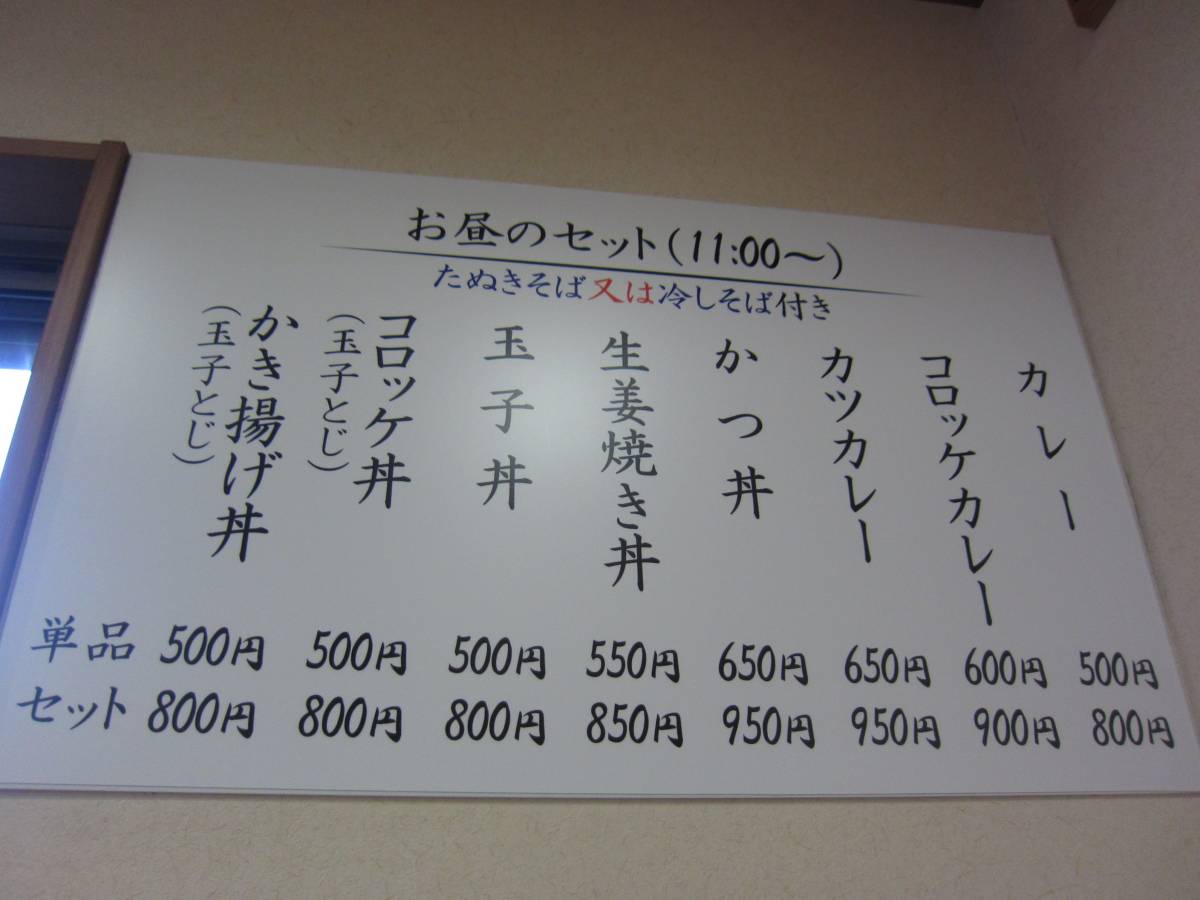 お昼のセット(11:00〜)
たぬきそば又は冷しそば付き
カレー
コロッケカレー
カツカレー
かつ丼
生姜焼き丼
玉子丼
コロッケ丼
(玉子とじ)
かき揚げ丼
(玉子とじ)
単品 500円 500円 500円 550円 650円 650円 600円 500円
セット 800円 800円 800円 850円 950円 950円 900円 800円